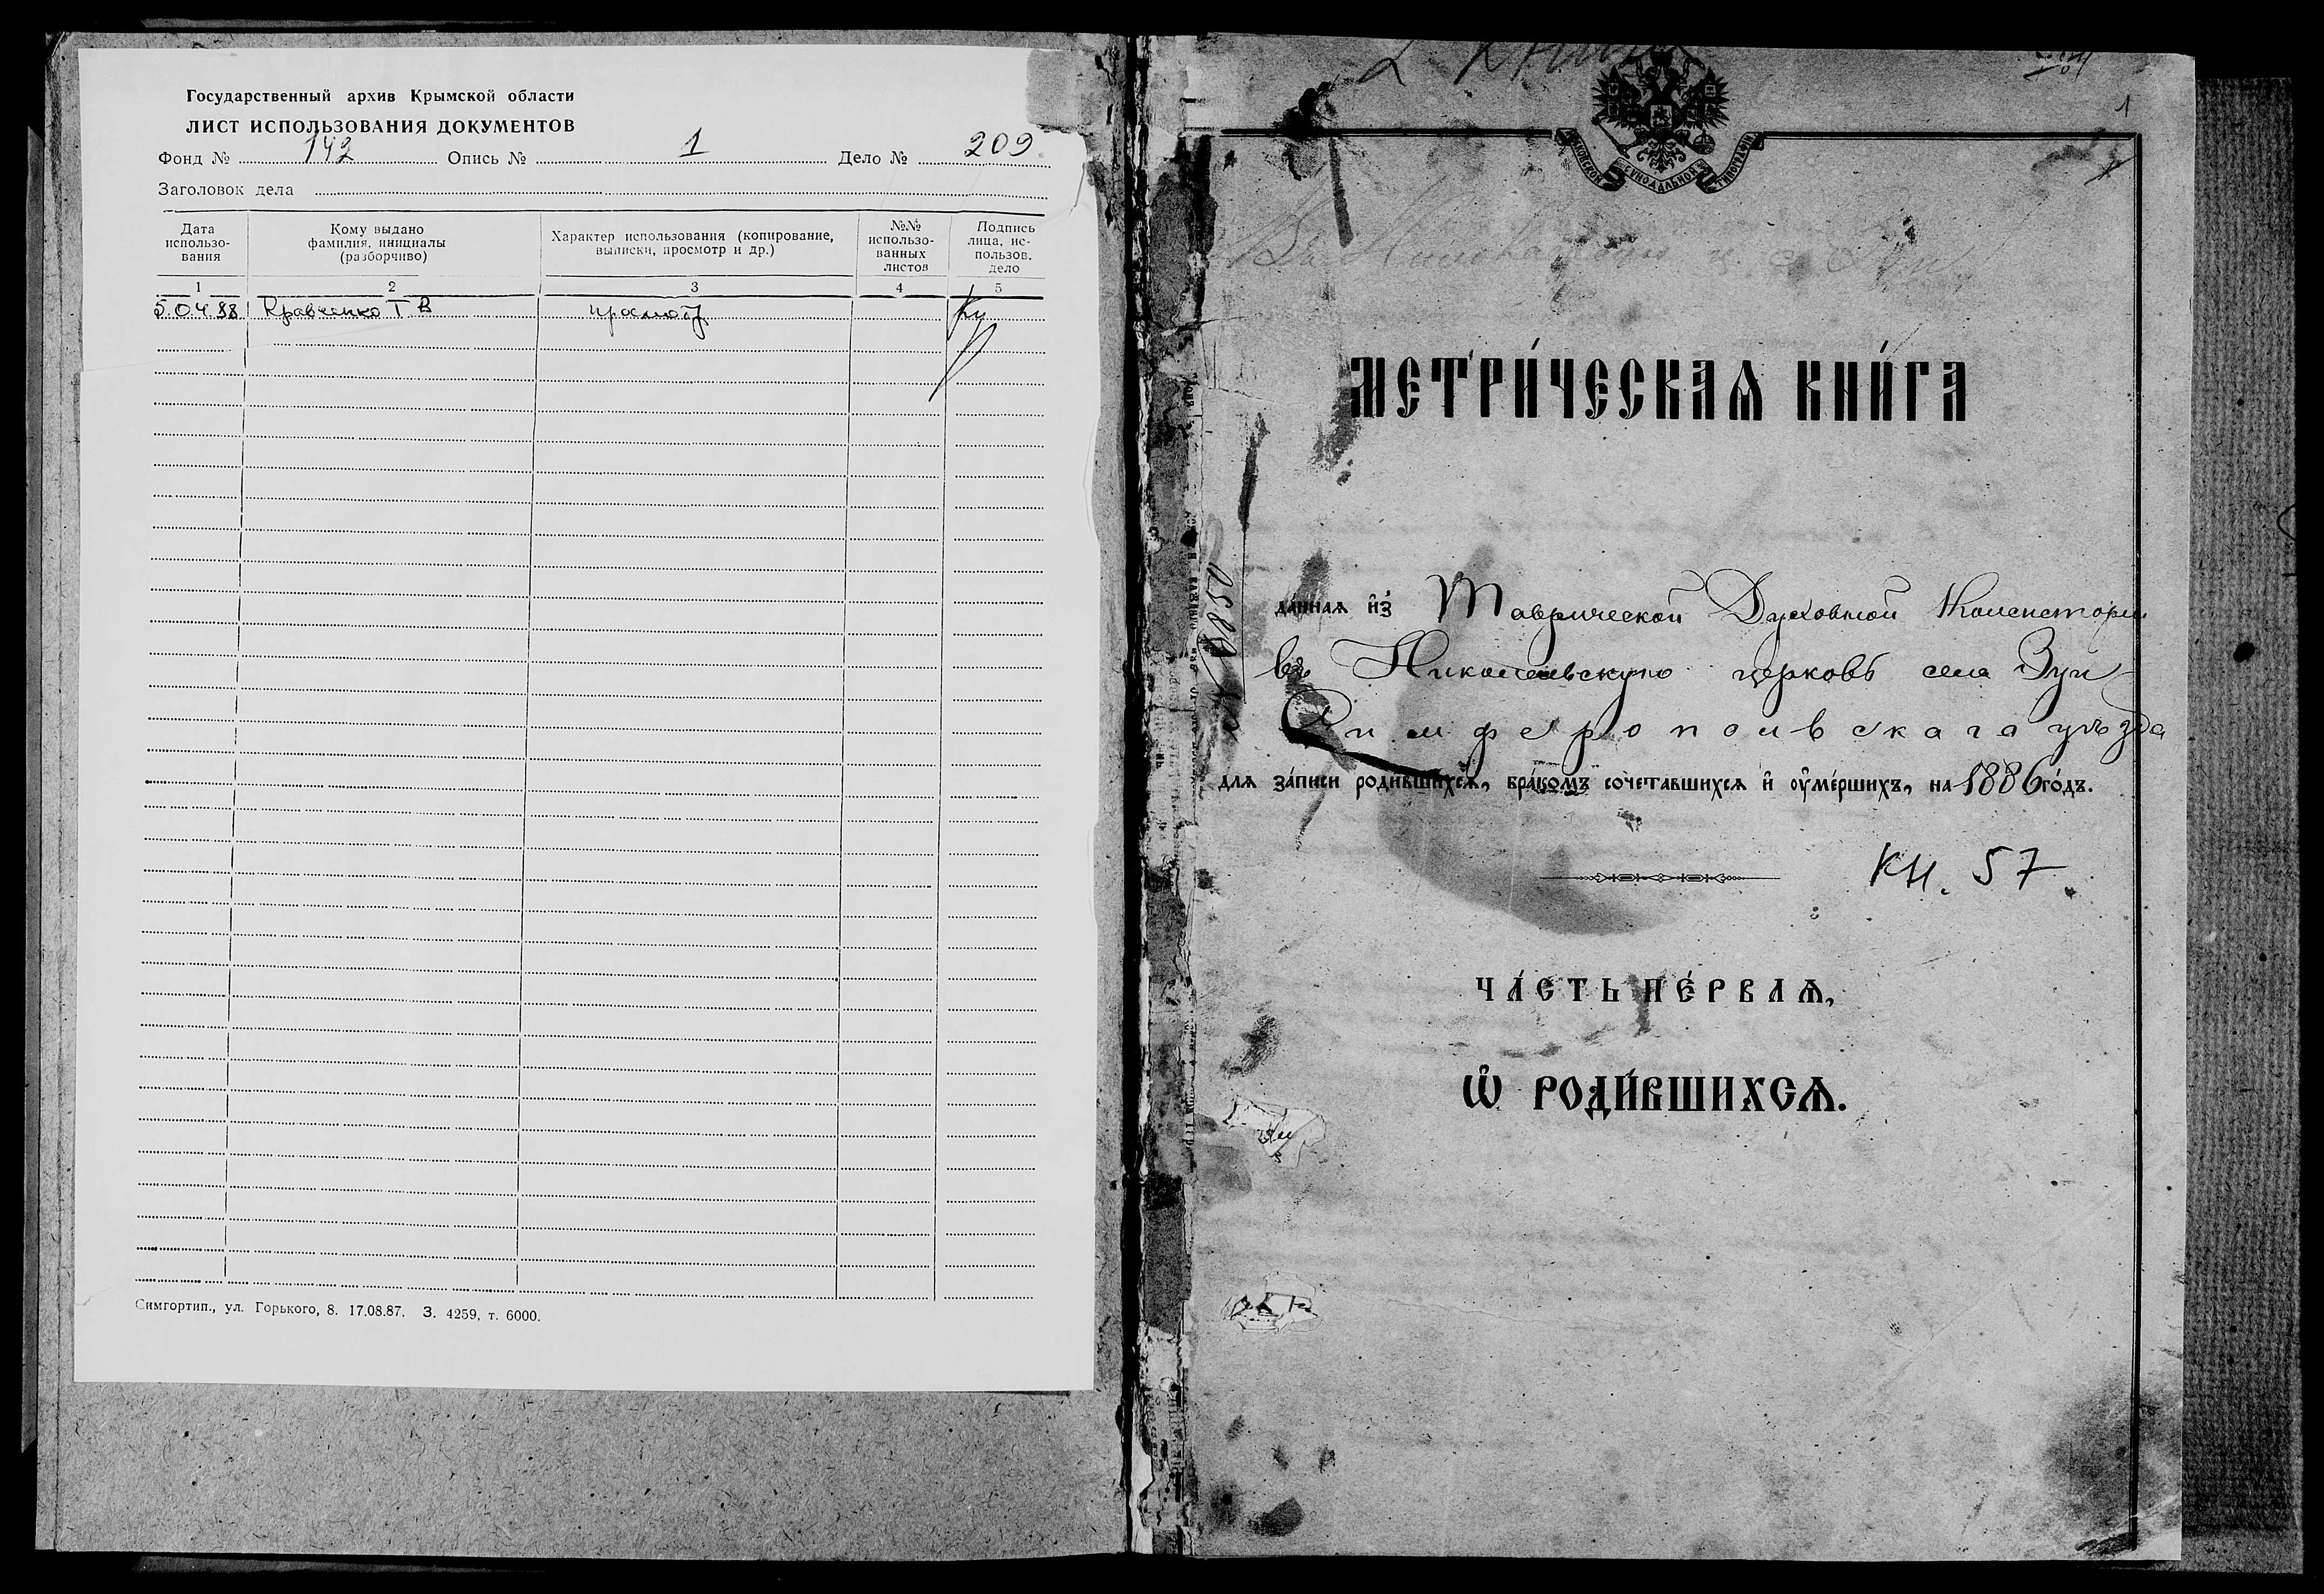 Государственный архив Крымской области
ЛИСТ ИСПОЛЬЗОВАНИЯ ДОКУМЕНТОВ
Фонд № 142 Опись № 1 Дело № 209
Заголовок дела
Дата использо-вания
Кому выдано фамилия, инициалы (разборчиво)
Характер использования (копирование, выписки, просмотр и др.)
№№ использо-ванных листов
Подпись лица, ис-пользов. дело
1 2 3 4 5
5.04.88 Кравченко Т В просмотр
Симгортип., ул. Горького, 8. 17.08.87. З. 4259, т. 6000.
1
СѴНОДАЛЬНОЙ ТИПОГРАФІИ
МЕТРИ́ЧЕСКАѦ КНИ́ГА
да́ннаѧ и҆з̾ Таврической Духовной Консистории
въ Николаевскую церковь села Зуи
Симферопольскаго уѣзда
длѧ за́писи роди́вшихсѧ, бра́комъ сочета́вшихсѧ и҆ ᲂу҆ме́ршихъ, на 1886 го́дъ.
Кн. 57
ЧА́СТЬ ПЕ́РВАѦ,
Ѡ҆ РОДИ́ВШИХСѦ.